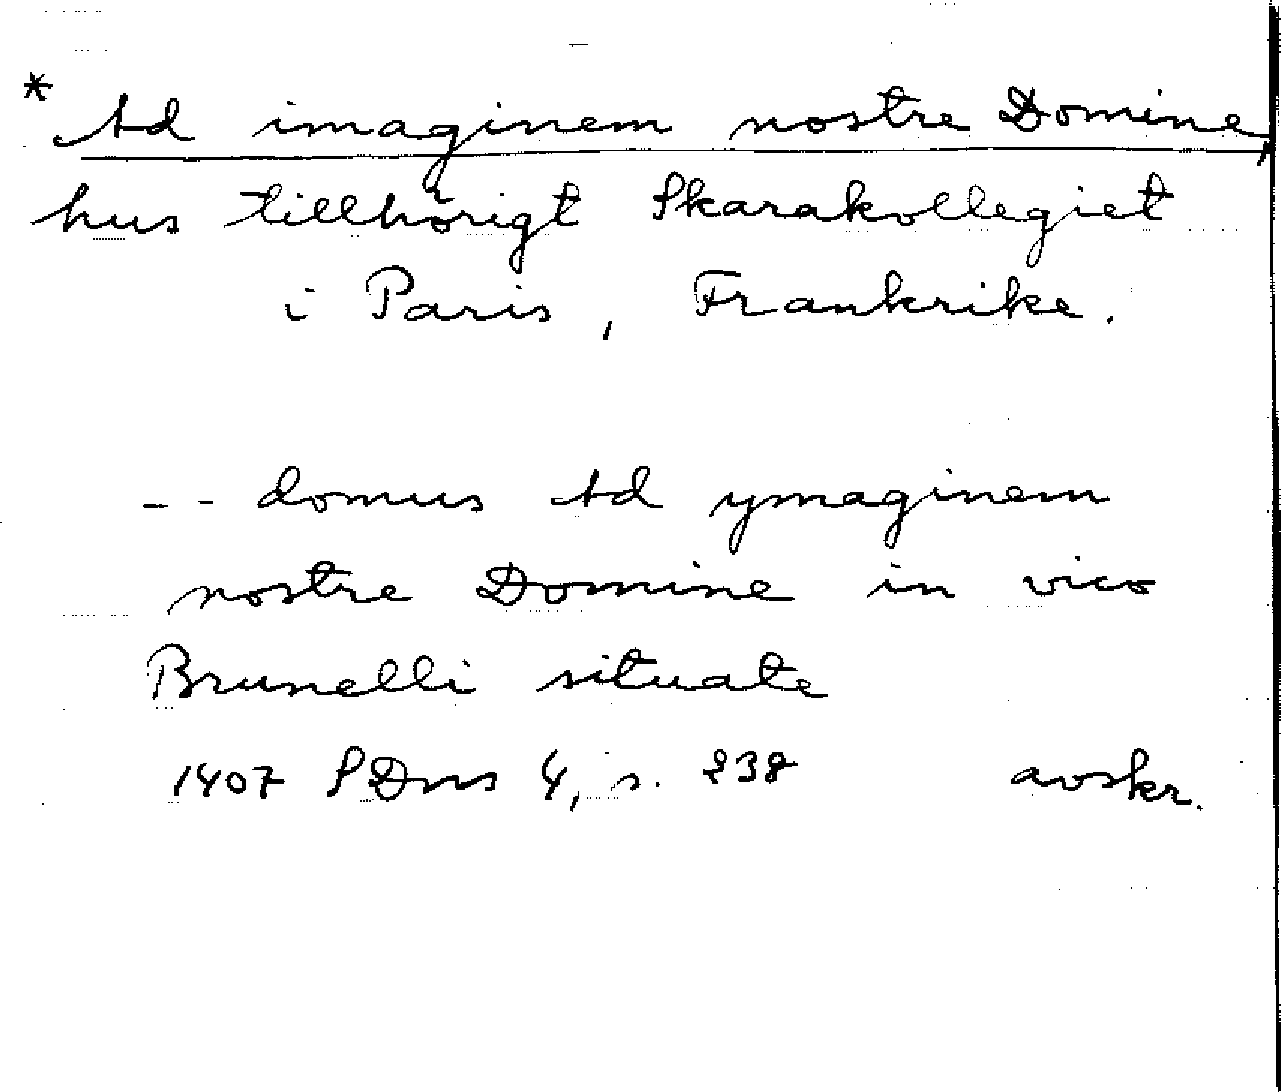 * Ad imaginem nostre Domine,
hus tillhörigt Skarakollegiet
i Paris, Frankrike.
-- domus Ad ymaginem
nostre Domine in vico
Brunelli situate
1407 SDns 4, s. 238 avskr.